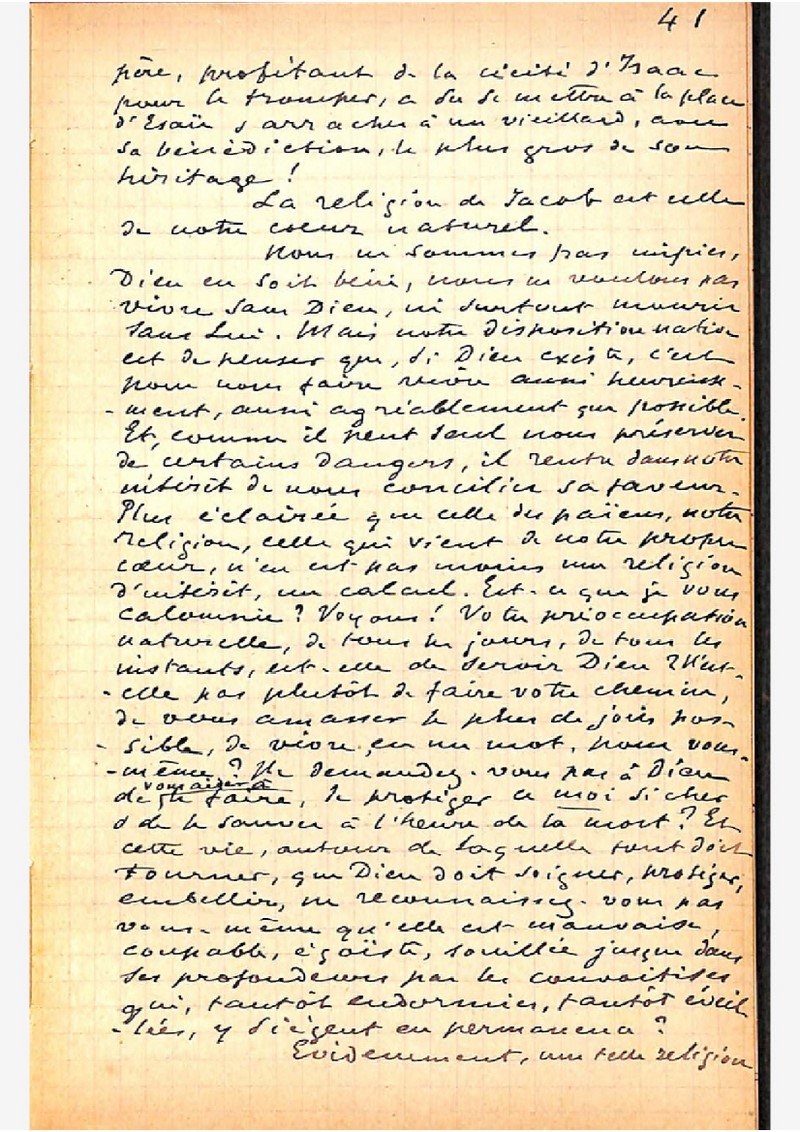 41
père, profitant de la cécité d'Isaac
pour le tromper, a su se mettre à la place
d'Esaü & arracher à un vieillard, avec
sa bénédiction, le plus gros de son
héritage !
La religion de Jacob est celle
de notre coeur naturel.
Nous ne sommes pas impies,
Dieu en soit béni, nous ne voulons pas
vivre sans Dieu, ni surtout mourir
sans Lui. Mais notre disposition native
est de penser que, si Dieu existe, c'est
pour nous faire vivre aussi heureuse-
-ment, aussi agréablement que possible.
Et, comme il peut seul nous préserver
de certains dangers, il rentre dans notre
intérêt de nous concilier sa faveur.
Plus éclairée que celle des païens, notre
religion, celle qui vient de notre propre
cœur, n'en est pas moins une religion
d'intérêt, un calcul. Est-ce que je vous
calomnie ? Voyons ! Votre préoccupation
naturelle, de tous les jours, de tous les
instants, est-elle de servir Dieu ? N'est-
-elle pas plutôt de faire votre chemin,
de vous amasser le plus de joies pos-
-sible, de vivre, en un mot, pour vous-
-même ? Ne demandez-vous pas à Dieu
de vous aider à le faire, de protéger ce moi si cher
& de le sauver à l'heure de la mort ? Et
cette vie, autour de laquelle tout doit
tourner, que Dieu doit soigner, protéger,
embellir, ne reconnaissez-vous pas
vous-même qu'elle est mauvaise,
coupable, égoïste, souillée jusque dans
ses profondeurs par les convoitises
qui, tantôt endormies, tantôt éveil-
-lées, y siègent en permanence ?
Evidemment, une telle religion